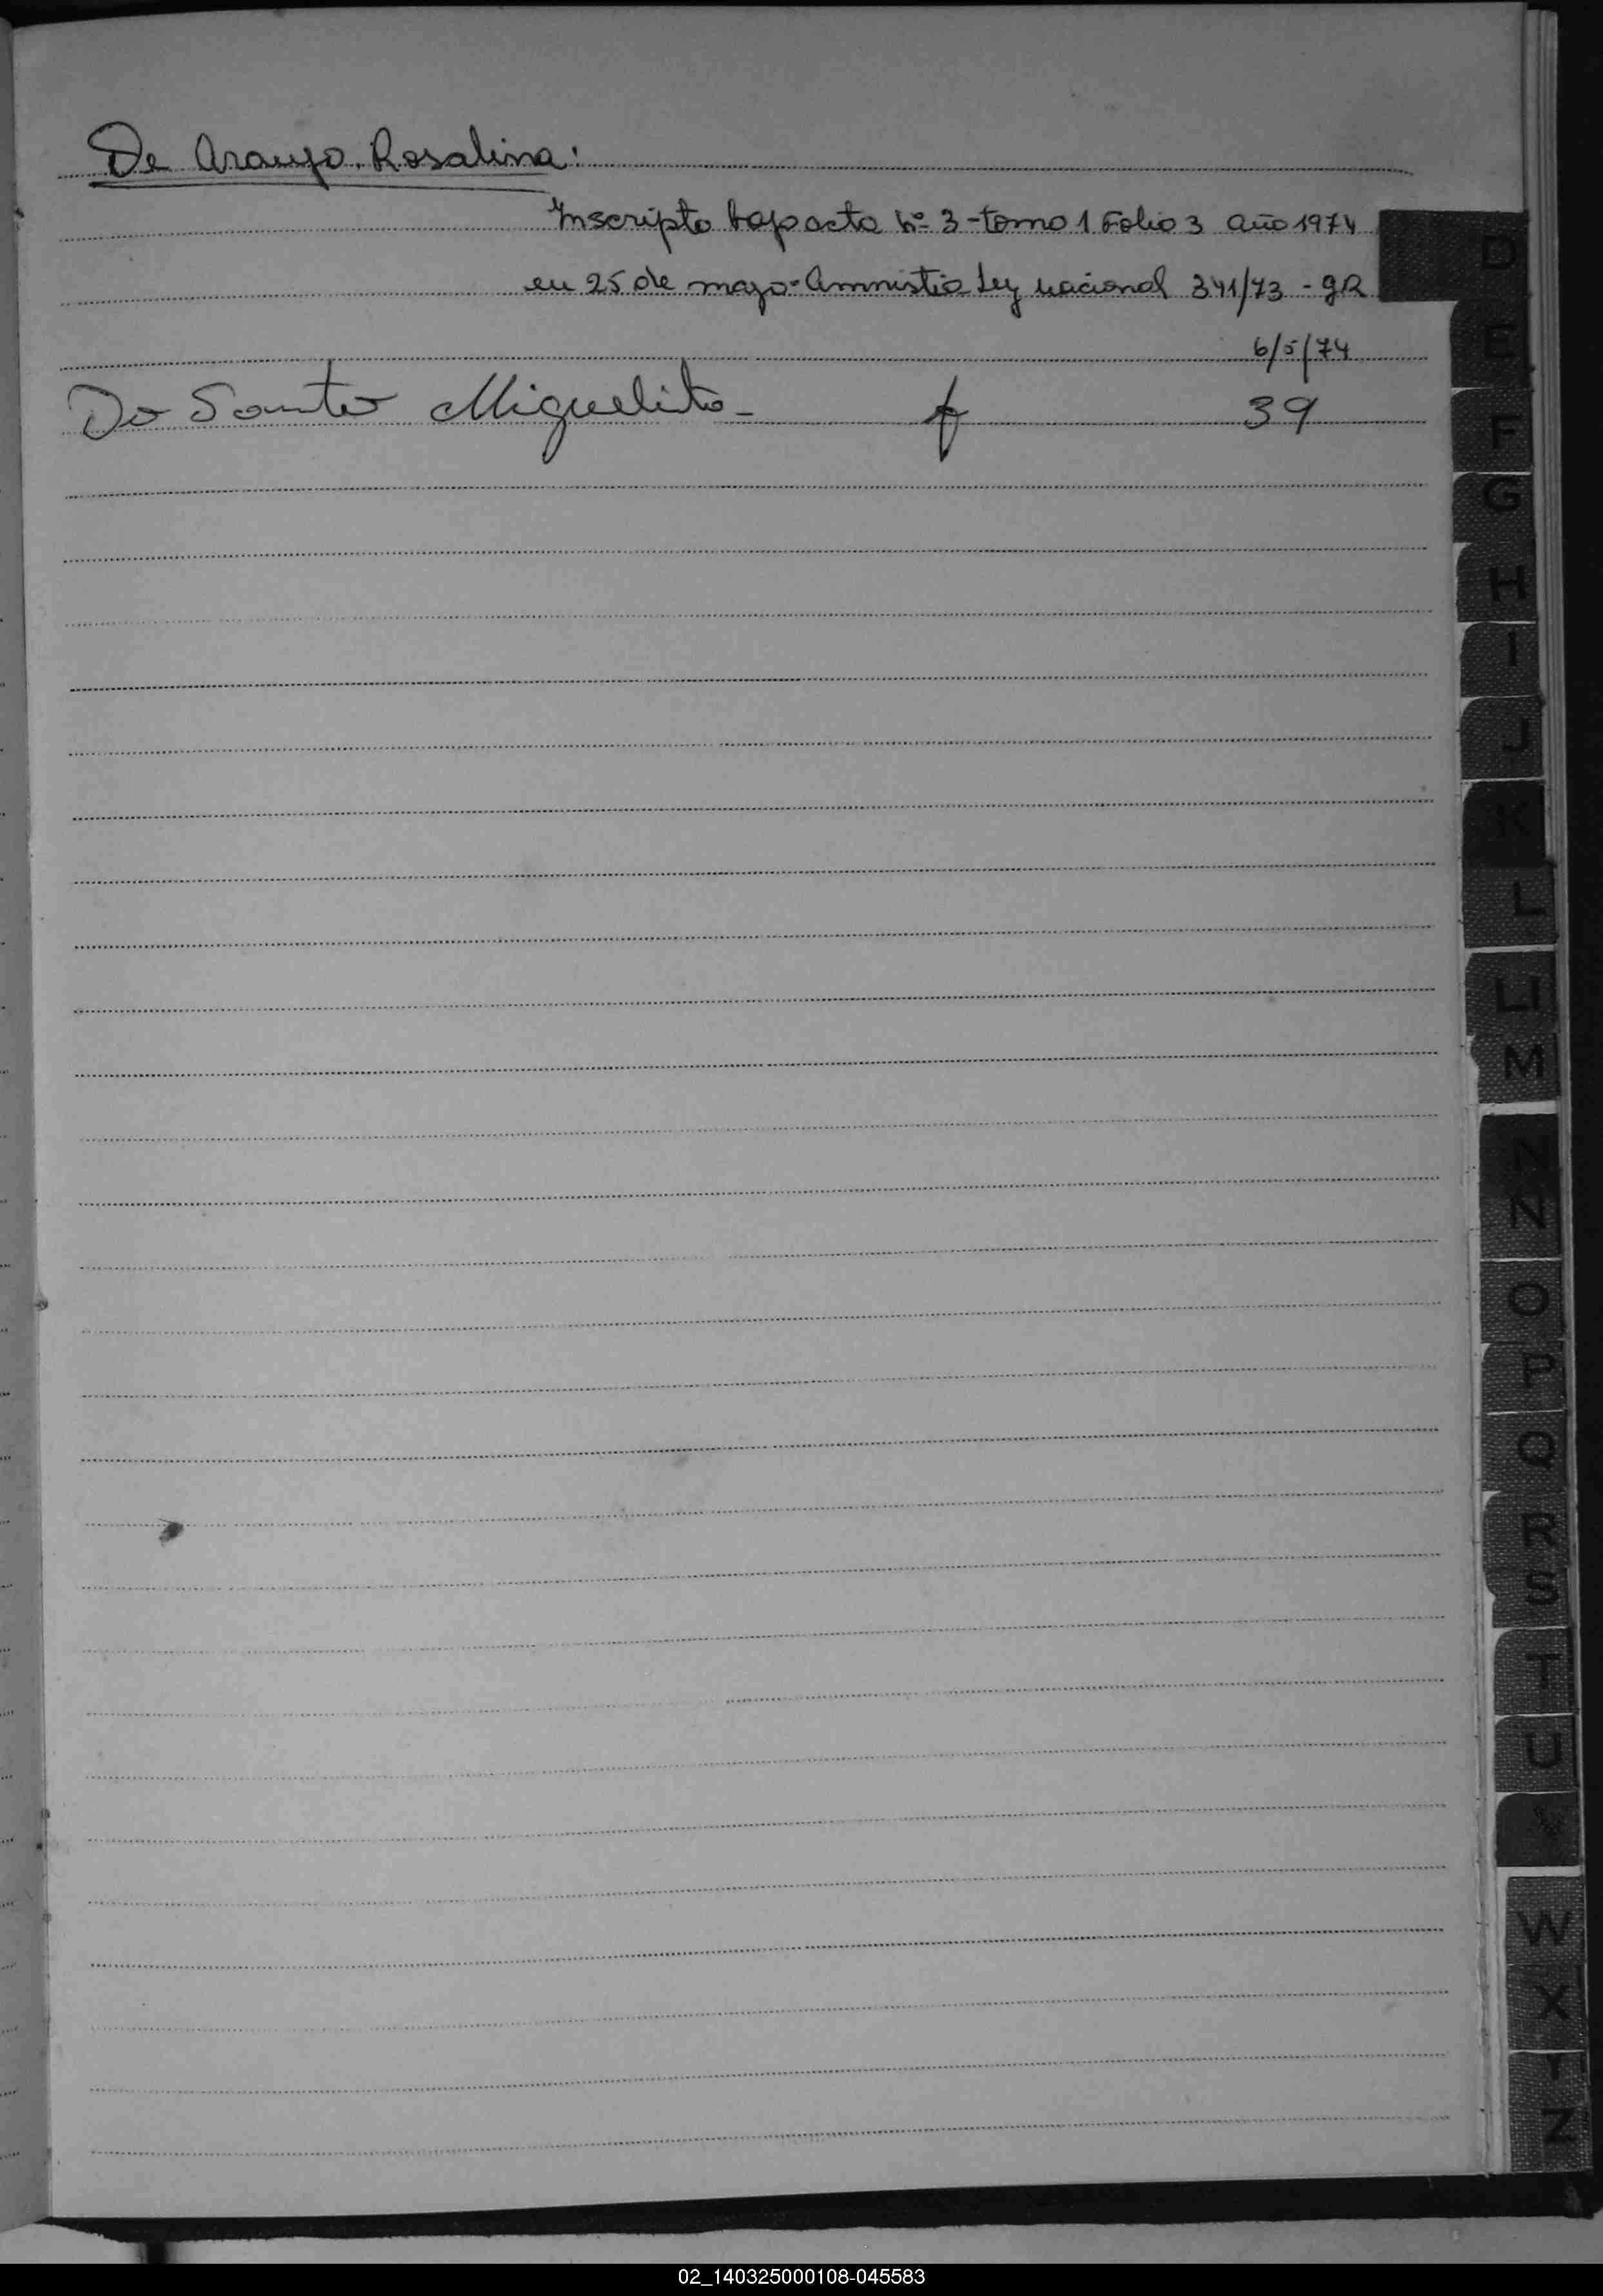 De Araujo Rosalina:
Inscripto bajo acta Nº 3 - tomo 1 Folio 3 año 1974
D
en 25 de mayo - Amnistia Ley nacional 341/73 - gR
6/5/74
E
Do Santo Miguelito - f 39
F
G
H
I
J
K
L
Ll
M
N
Ñ
O
P
Q
R
S
T
U
V
W
X
Y
Z
02_140325000108-045583